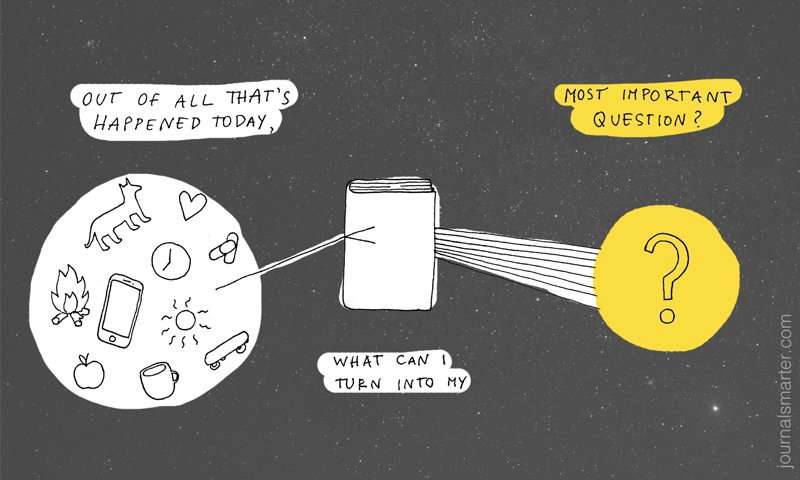 OUT OF ALL THAT'S
HAPPENED TODAY,
WHAT CAN I
TURN INTO MY
MOST IMPORTANT
QUESTION?
?
journalsmarter.com